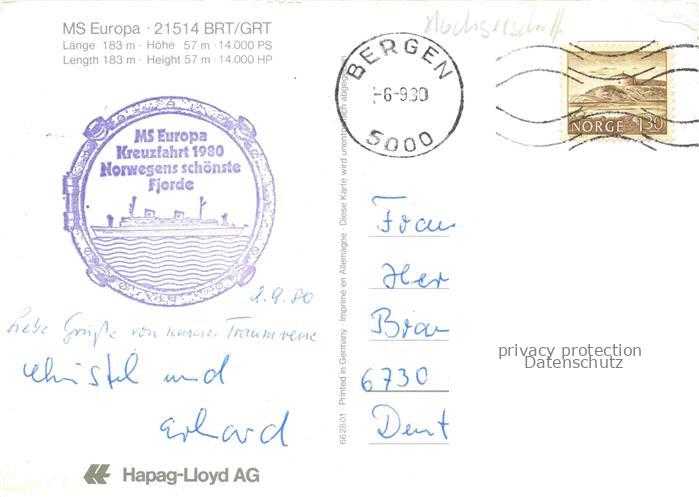 MS Europa · 21514 BRT/GRT
Länge 183 m · Höhe 57 m · 14.000 PS
Length 183 m · Height 57 m · 14.000 HP
BERGEN
-6-9.80
5000
NORGE 1,30
MS Europa
Kreuzfahrt 1980
Norwegens schönste
Fjorde
2.9.80
Liebe Grüße von unserer Traumreise
Christel und
Erhard
Hapag-Lloyd AG
662801 · Printed in Germany · Imprimé en Allemagne · Diese Karte wird unentgeltlich abgegeben
Frau
Her
Brau
6730
Deut
privacy protection
Datenschutz